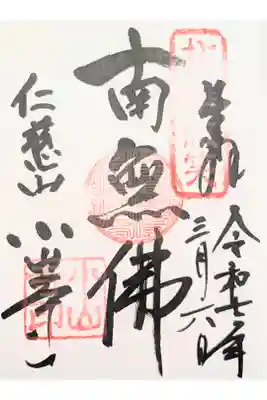 奉拝
令和七年
三月六日
南無佛
仁慈山
小峯